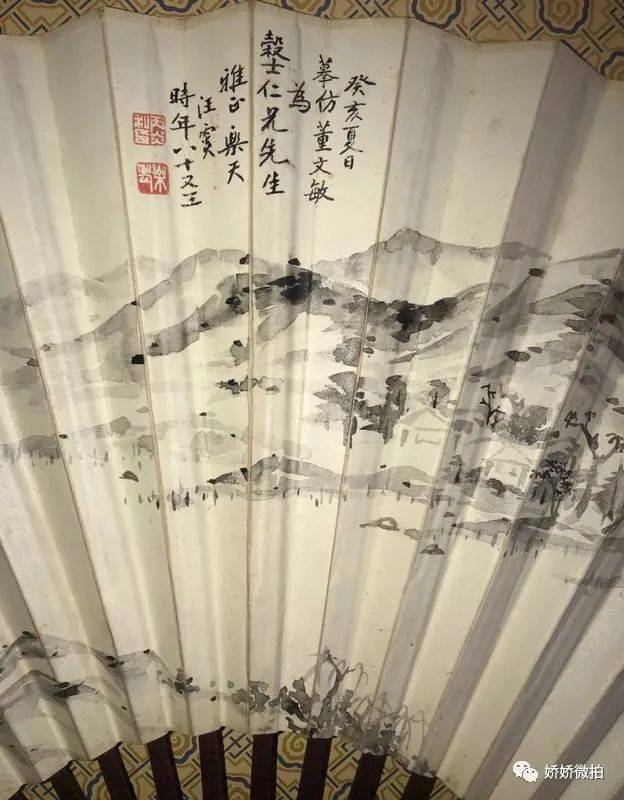 癸亥夏日
摹仿董文敏
為
穀士仁兄先生
雅正 樂天
汪
時年八十又三
娇娇微拍